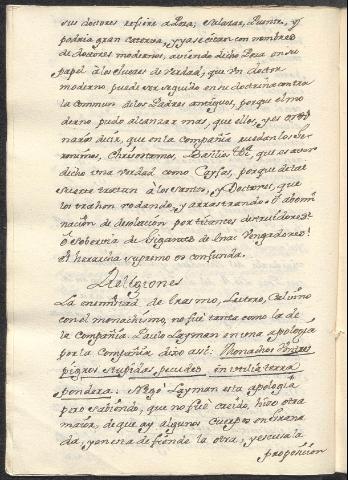 sus doctores refiere a Poza, Salazar, Puente, y
podria gran caterva, y ya se citan con nombres
de doctores modernos, aviendo dicho Poza en su
papel à los de verdad, que Un doctor
moderno puede ser seguido en su doctrina contra
la commun de los Padres antiguos, porque el mo
derno pudo alcanzar mas, que ellos, y es ordi
nario decir, que en la Compañia ruedan los Ge
ronimos, Chrisostomos, Basilios, &c, que es aver
dicho una verdad como Cayfas, porque de tal
suerte tratan à los santos, y Doctores, que
los trahen rodando, y arrastrando. O abomi
nacion de desolacion por titanes destruidores!
O soberbia de Gigantes de Enac Vengadores!
El herarcha supremo os confunda.
Religiones
La enemistad de Erasmo, Lutero, Calvino
con el monachismo, no fuè tanta como la de
la Compañia. Paulo Layman en una apologia
por la Compañia dixo assi: Monachos
pigros stupidos, pecudes inutilia terræ
pondera. Negò Layman esta apologia
pero sabiendo, que no fuè creido, hizo otra
maior, de que ay algunos cuerpos en Grana
da, y en esta defiende la otra, y escusa la
proposicion